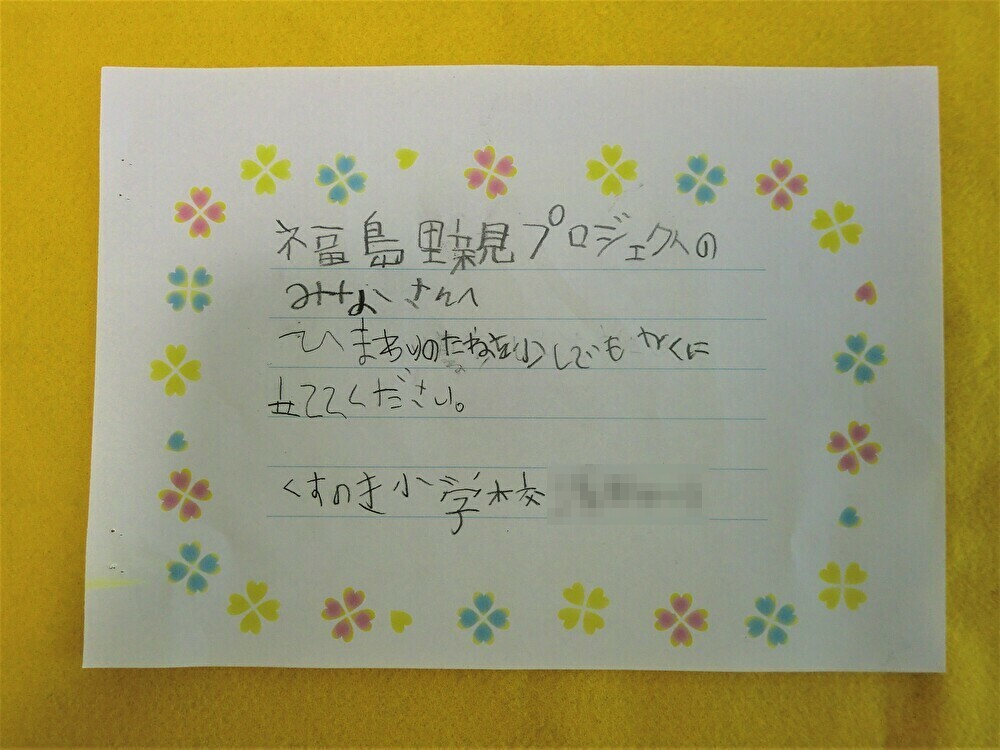 福島里親プロジェクトの
みなさんへ
ひまわりのたねを少しでもやくに
立ててください。
くすのき小学校